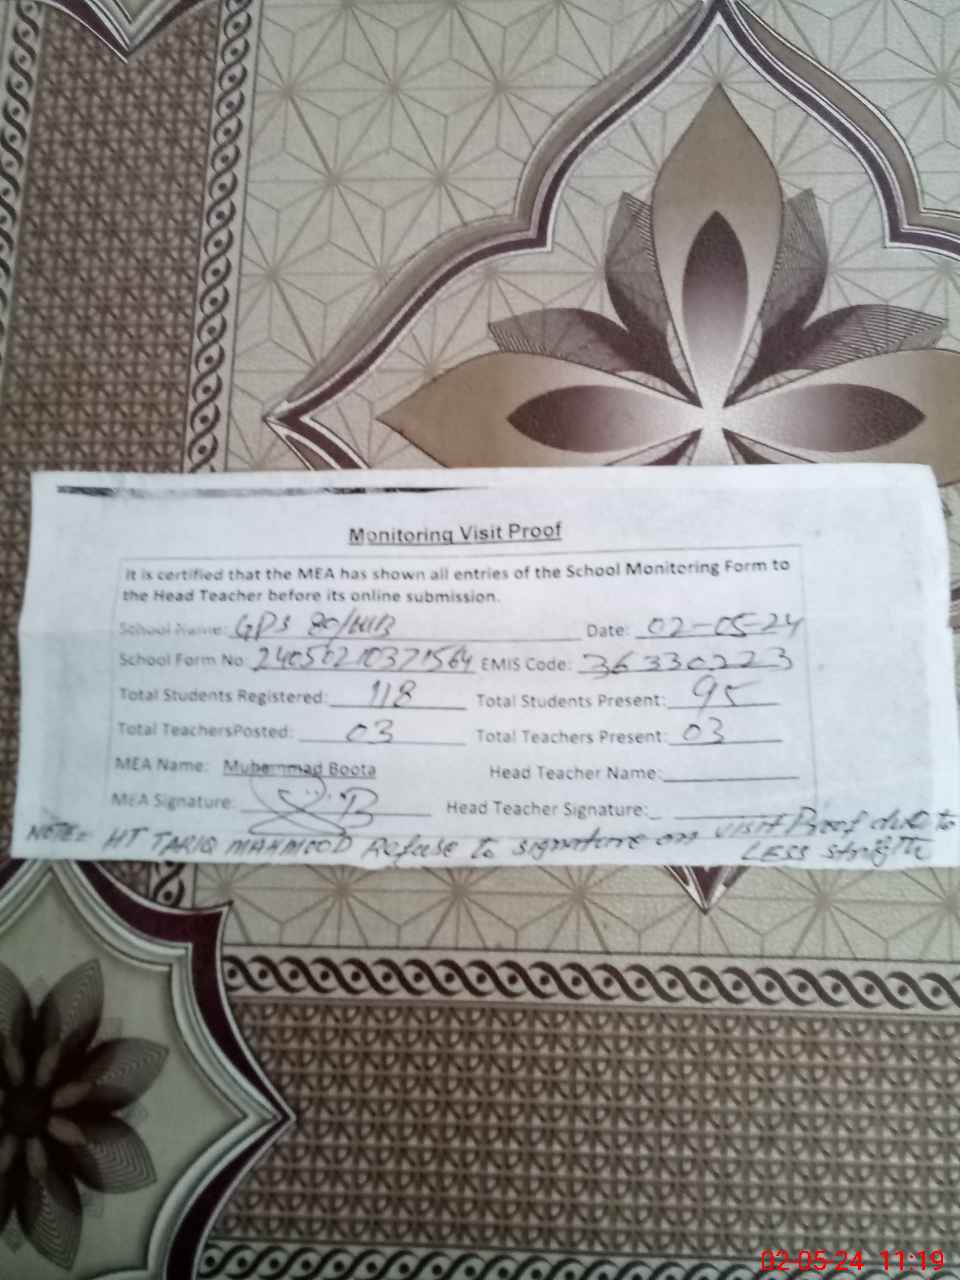 Monitoring Visit Proof
It is certified that the MEA has shown all entries of the School Monitoring Form to
the Head Teacher before its online submission.
School Name: GPS 80/WB Date: 02-05-24
School Form No: 24050210371564 EMIS Code: 36330223
Total Students Registered: 118 Total Students Present: 95
Total TeachersPosted: 03 Total Teachers Present: 03
MEA Name: Muhammad Boota Head Teacher Name:
MEA Signature: Head Teacher Signature:
NOTE:- HT TARIQ MAHMOOD Refuse to signature on visit Proof due to
LESS
02-05-24 11:19